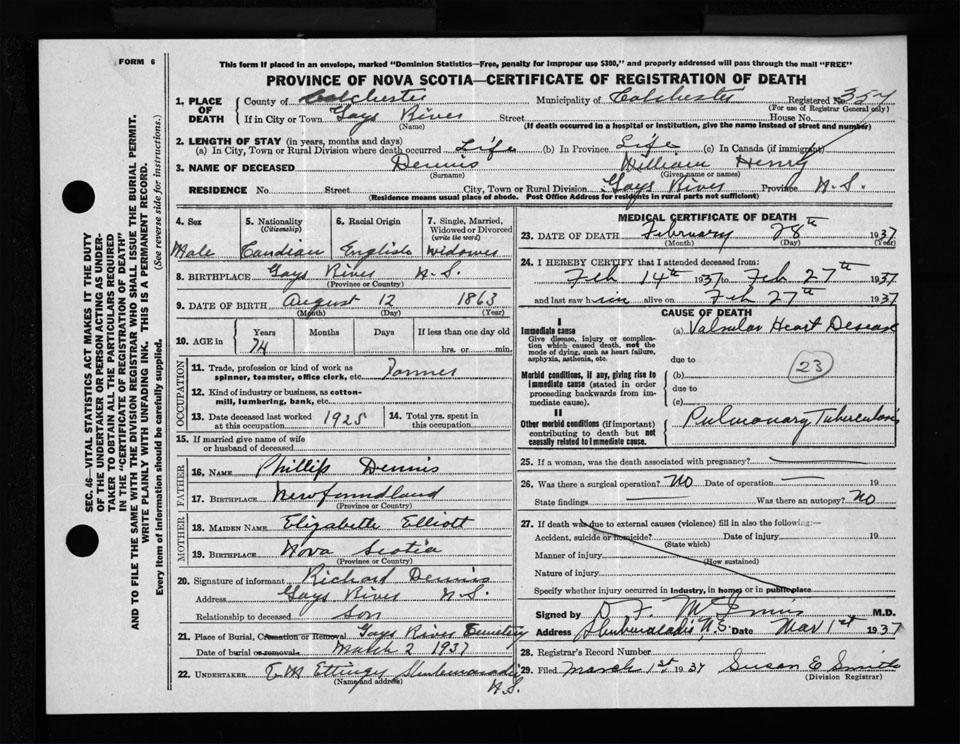 FORM 6
This form if placed in an envelope, marked "Dominion Statistics—Free, penalty for improper use $300," and properly addressed will pass through the mail "FREE"
PROVINCE OF NOVA SCOTIA—CERTIFICATE OF REGISTRATION OF DEATH
SEC. 46—VITAL STATISTICS ACT MAKES IT THE DUTY
OF THE UNDERTAKER OR PERSON ACTING AS UNDER-
TAKER TO OBTAIN ALL THE PARTICULARS REQUIRED
IN THE "CERTIFICATE OF REGISTRATION OF DEATH"
AND TO FILE THE SAME WITH THE DIVISION REGISTRAR WHO SHALL ISSUE THE BURIAL PERMIT.
WRITE PLAINLY WITH UNFADING INK. THIS IS A PERMANENT RECORD.
Every item of information should be carefully supplied. (See reverse side for instructions.)
1. PLACE OF DEATH County of Colchester Municipality of Colchester Registered No. 357
(For use of Registrar General only)
If in City or Town Gays River Street House No.
(Name) (If death occurred in a hospital or institution, give the name instead of street and number)
2. LENGTH OF STAY (in years, months and days)
(a) In City, Town or Rural Division where death occurred Life (b) In Province Life (c) In Canada (if immigrant)
3. NAME OF DECEASED Dennis William Henry
(Surname) (Given name or names)
RESIDENCE No. Street City, Town or Rural Division Gays River Province N.S.
(Residence means usual place of abode. Post Office Address for residents in rural parts not sufficient)
4. Sex 5. Nationality (Citizenship) 6. Racial Origin 7. Single, Married, Widowed or Divorced (write the word)
Male Candian English Widower
8. BIRTHPLACE Gays River N.S.
(Province or Country)
9. DATE OF BIRTH August 12 1863
(Month) (Day) (Year)
10. AGE in Years Months Days If less than one day old
74 hrs. or min.
OCCUPATION
11. Trade, profession or kind of work as spinner, teamster, office clerk, etc.
12. Kind of industry or business, as cotton-mill, lumbering, bank, etc.
13. Date deceased last worked at this occupation 1925 14. Total yrs. spent in this occupation
15. If married give name of wife or husband of deceased
FATHER
16. NAME Phillip Dennis
17. BIRTHPLACE Newfoundland
(Province or Country)
MOTHER
18. MAIDEN NAME Elizabeth Elliott
19. BIRTHPLACE Nova Scotia
(Province or Country)
20. Signature of informant Richard Dennis
Address Gays River N.S.
Relationship to deceased Son
21. Place of Burial, Cremation or Removal Gays River Cemetery
Date of burial or removal March 2 1937
22. UNDERTAKER Ettinger N.S.
(Name and address)
MEDICAL CERTIFICATE OF DEATH
23. DATE OF DEATH February 28th 1937
(Month) (Day) (Year)
24. I HEREBY CERTIFY that I attended deceased from:
Feb 14th 1937 to Feb 27th 1937
and last saw him alive on Feb 27th 1937
CAUSE OF DEATH
I
Immediate cause (a) Valvular Heart Desease
Give disease, injury or complication which caused death, not the mode of dying, such as heart failure, asphyxia, asthenia, etc.
due to
Morbid conditions, if any, giving rise to immediate cause (stated in order proceeding backwards from immediate cause). (b) 23
due to
(c)
II
Other morbid conditions (if important) contributing to death but not causally related to immediate cause. Pulmonary Tuberculosis
25. If a woman, was the death associated with pregnancy?
26. Was there a surgical operation? NO Date of operation 19
State findings Was there an autopsy? NO
27. If death was due to external causes (violence) fill in also the following:—
Accident, suicide or homicide? Date of injury 19
(State which)
Manner of injury
(How sustained)
Nature of injury
Specify whether injury occurred in industry, in home, or in public place
Signed by D F McInnis M.D.
Address N.S. Date Mar 1st 1937
28. Registrar's Record Number
29. Filed March 1st 1937 Susan E Smith
(Division Registrar)